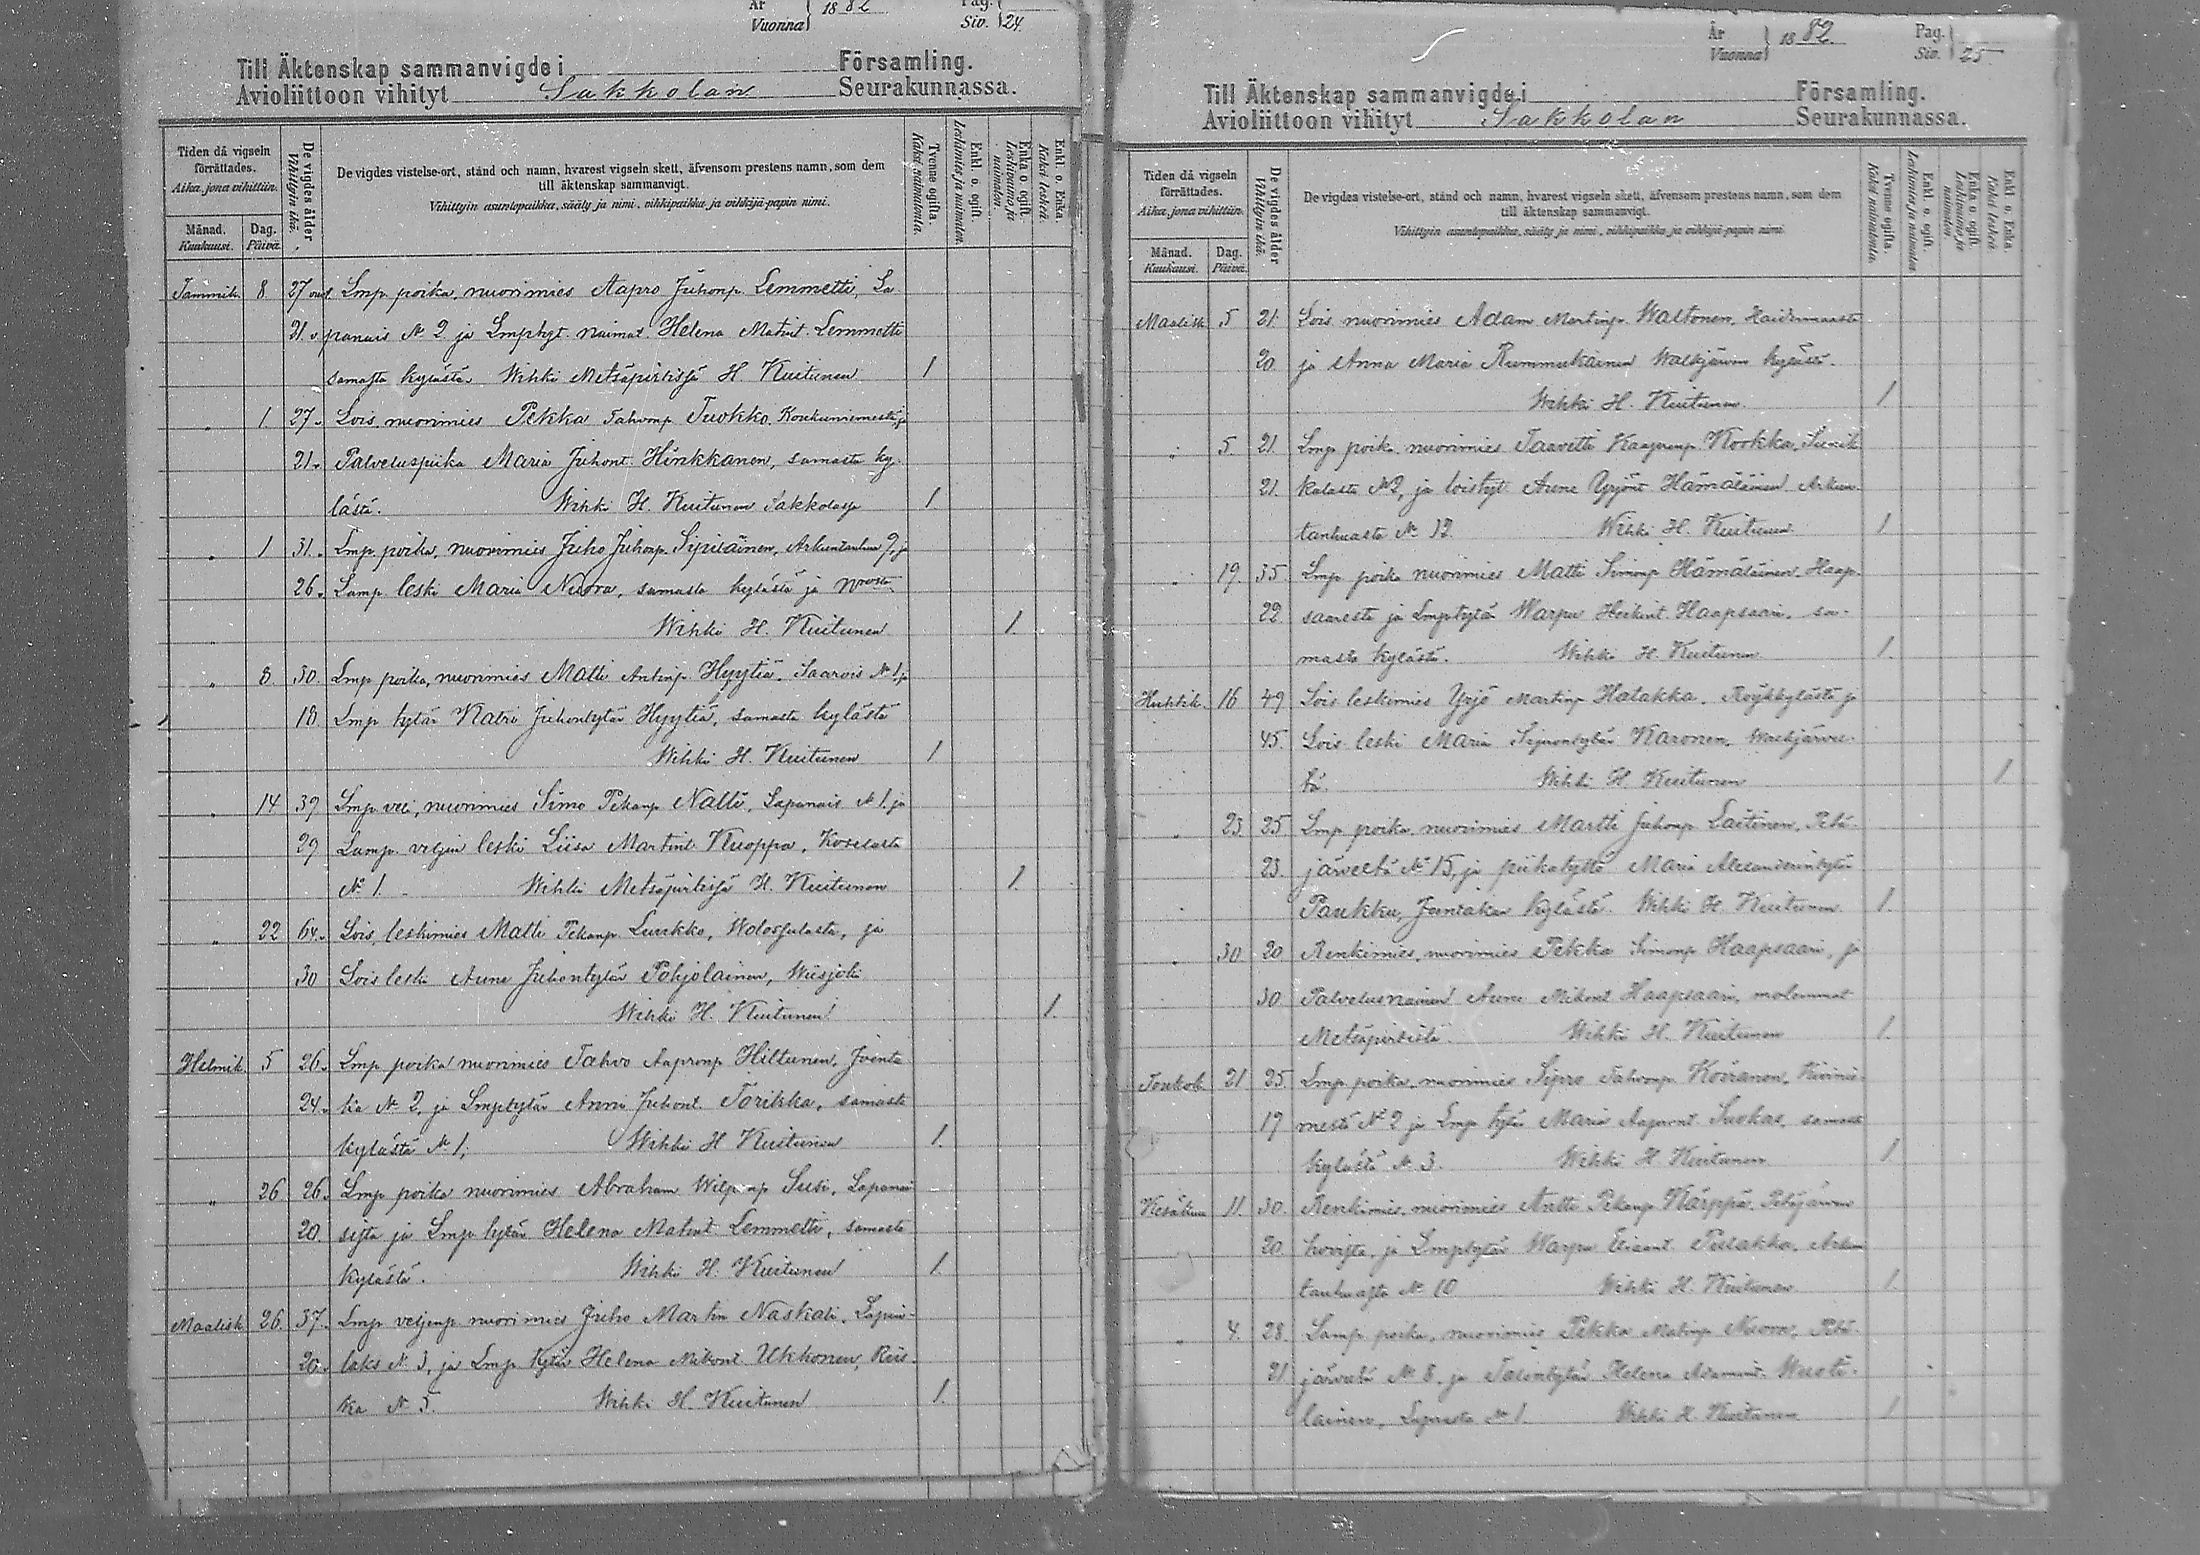 År
Vuonna } 1882
Pag.
Siv. } 24
Till Äktenskap sammanvigde i Församling.
Avioliittoon vihityt Sakkolan Seurakunnassa.
Tiden då vigseln förrättades.
Aika, jona vihittiin.
Månad.
Kuukausi.
Dag.
Päivä.
De vigdes ålder
Vihittyin ikä.
De vigdes vistelse-ort, stånd och namn, hvarest vigseln skett, äfvensom prestens namn, som dem
till äktenskap sammanvigt.
Vihittyin asuntopaikka, sääty ja nimi, vihkipaikka ja vihkijä-papin nimi.
Tvenne ogifta.
Kaksi naimatonta.
Enkl. o. ogift.
Leskimies ja naimaton.
Enka o. ogift.
Leskivaimo ja naimaton
Enkl. o. Enka.
Kaksi leskeä.
Tammik. 8 27 Lmp. poika, nuorimies Aapro Juhonp. Lemmetti, La
21. panais № 2 ja Lmptyt. naimat. Helena Matint. Lemmetti
samasta kylästä. Wihki Metsäpirtissä H. Kuitunen 1
„ 1 27. Lois, nuorimies Pekka Tahvonp Tuokko, Konkuniemestä, ja
21. Palveluspiika Maria Juhont. Hinkkanen, samasta ky-
lästä. Wihki H. Kuitunen Sakkolassa 1
„ 1 31. Lmp. poika, nuorimies Juho Juhonp. Sipiläinen, Arkuntanhua 9, ja
26. Lamp. leski Maria Nuora, samasta kylästä ja
Wihki H. Kuitunen 1.
„ 8. 30. Lmp poika, nuorimies Matti Antinp Hyytiä, Saarois № 1, ja
18. Lmp tytär Katri Juhontytär Hyytiä, samasta kylästä
Wihki H. Kuitunen 1
„ 14 39 Lmp veli, nuorimies Simo Pekanp Natti, Lapanais № 1. ja
29 Lamp. veljen leski Liisa Martint Kuoppa, Koselasta
№ 1. Wihki Metsäpirtissä H. Kuitunen 1.
„ 22 64. Lois, leskimies Matti Pekanp Luukko, Wolosjulasta, ja
30 Lois leski Anna Juhontytär Pohjolainen, Wiisjoki
Wihki H. Kuitunen 1.
Helmik. 5 26. Lmp poika nuorimies Tahvo Aapronp Hiltunen, Joenta
24. ka № 2, ja Lmptytär Anni Juhont. Torikka, samasta
kylästä № 1, Wihki H Kuitunen 1.
„ 26 26. Lmp poika nuorimies Abraham Wilp np Susi, Lapanai
20. sista ja Lmp tytär Helena Matint Lemmetti, samasta
kylästä. Wihki H. Kuitunen 1.
Maalisk. 26. 37. Lmp veljenp nuorimies Juho Martin Naskali, Lapin-
20. laks № 3, ja Lmp tytär Helena Mikont Ukkonen, Riis-
ka № 5. Wihki H. Kuitunen 1.
År
Vuonna } 1882.
Pag.
Siv. } 25
Till Äktenskap sammanvigde i Församling.
Avioliittoon vihityt Sakkolan Seurakunnassa.
Tiden då vigseln förrättades.
Aika, jona vihittiin.
Månad.
Kuukausi.
Dag.
Päivä.
De vigdes ålder
Vihittyin ikä.
De vigdes vistelse-ort, stånd och namn, hvarest vigseln skett, äfvensom prestens namn, som dem
till äktenskap sammanvigt.
Vihittyin asuntopaikka, sääty ja nimi, vihkipaikka ja vihkijä-papin nimi.
Tvenne ogifta.
Kaksi naimatonta.
Enkl. o. ogift.
Leskimies ja naimaton.
Enka o. ogift.
Leskivaimo ja naimaton
Enkl. o. Enka.
Kaksi leskeä.
Maalisk 5 21. Lois nuorimies Adam Martinp. Waltonen, Haitermaasta
20. ja Anna Maria Rummukainen Walkjärven kylästä.
Wihki H. Kuitunen 1.
„ 5. 21. Lmp poika nuorimies Taavetti Kasperinp. Kookka,
21. kalasta № 2, ja loistyt. Anna Yrjönt Hämäläinen Arkun-
tanhuasta № 12 Wihki H. Kuitunen 1.
„ 19. 35. Lmp poika nuorimies Matti Simonp Hämäläinen, Haap-
22 saaresta ja Lmptytär Warpu Heikint. Haapsaari, sa-
masta kylästä. Wihki H. Kuitunen 1.
Huhtik. 16 49 Lois leskimies Yrjö Martinp Halakka, Röykkylästä ja
45. Lois leski Maria Sipontytär Karonen, Walkjärvel-
tä. Wihki H. Kuitunen 1
„ 23 25 Lmp poika, nuorimies Martti Juhonp Laitinen, Petä-
23. järveltä № 15, ja piikatyttö Maria Alexanderintytär
Paukku, Joentakan kylästä. Wihki H. Kuitunen 1.
„ 30 20 Renkimies, nuorimies Pekka Simonp Haapsaari, ja
30 Palvelusnainen Anna Mikont Haapsaari, molemmat
Metsäpirtistä. Wihki H. Kuitunen 1.
Toukok. 21 25. Lmp poika, nuorimies Sipro Tahvonp Koiranen, Kivinie-
17 mestä № 2 ja Lmp tytär Maria Aapront Suokas, samasta
kylästä № 3. Wihki H Kuitunen 1
Kesäkuu 11. 30. Renkimies, nuorimies Antti Pekanp Kärppä, Petäjärven
20. hovista, ja Lmptytär Warpu Eliaant Pulakka, Arkun
tanhuasta № 10 Wihki H. Kuitunen 1.
„ 4. 28. Lamp. poika, nuorimies Pekka Matinp Nuora, Petä-
21. järveltä № 8, ja Talontytär Helena Adamint. Wuoti-
lainen, № 1. Wihki H. Kuitunen 1